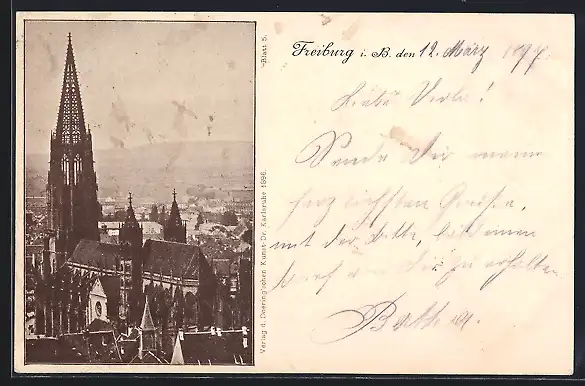 Blatt 5.
Verlag d. Doering'schen Kunst-Dr. Karlsruhe 1896.
Freiburg i. B. den 12. März 1897.
Liebe
Sende Dir meine
herzlichsten Grüsse,
mit der Bitte, 
von Dir zu erhalten
Bertha.